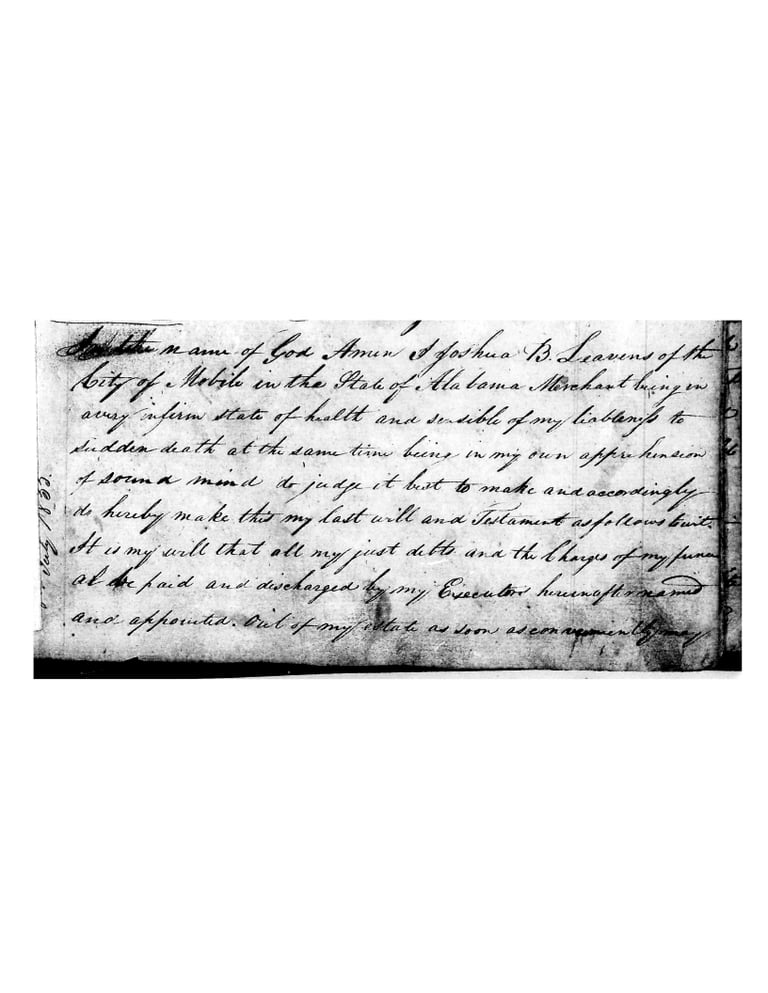 In the name of God Amen I Joshua B. Leavens of the
City of Mobile in the State of Alabama Merchant being in
a very infirm state of health and sensible of my liableness to
sudden death at the same time being in my own apprehension
of sound mind do judge it best to make and accordingly
do hereby make this my last will and Testament as follows towit.
It is my will that all my just debts and the Charges of my funer
al be paid and discharged by my Executors hereinafter named
and appointed. Out of my estate as soon as conveniently may
July 1833